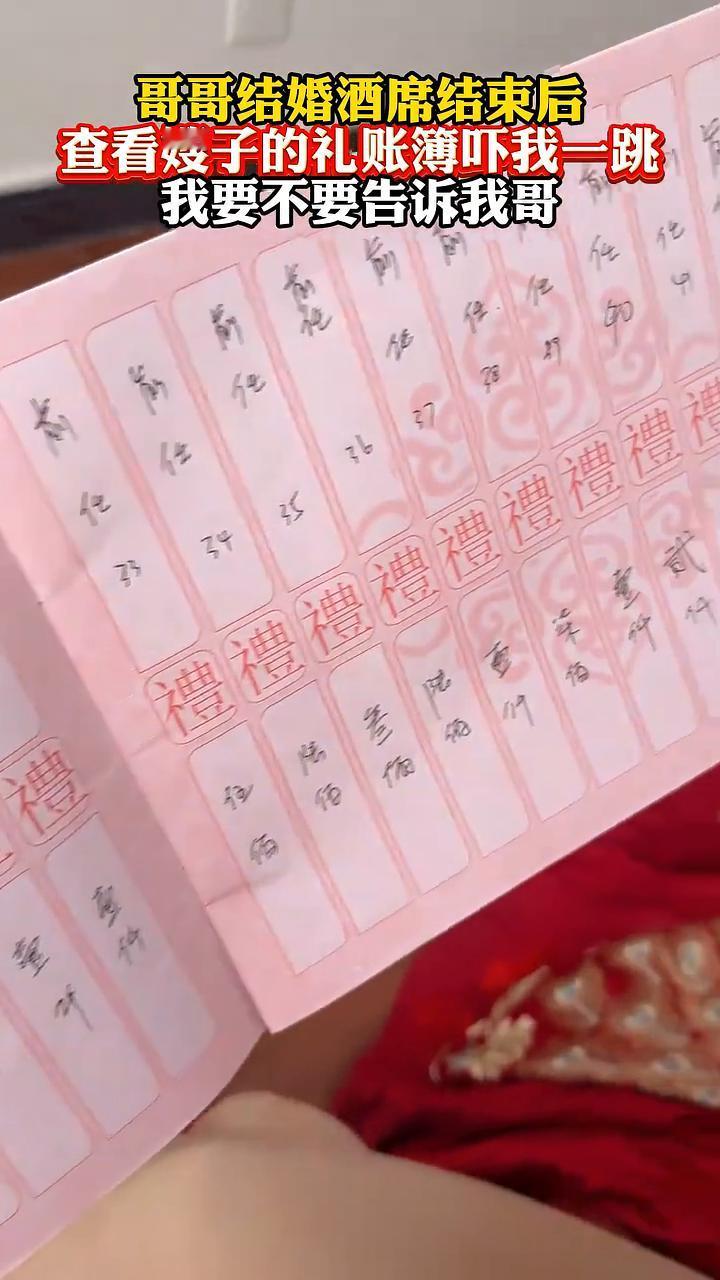 哥哥结婚酒席结束后
查看嫂子的礼账簿吓我一跳
我要不要告诉我哥
前任33
前任34
前任35
前任36
前任37
前任38
任39
前任40
前任41
禮禮禮禮禮禮禮禮禮
伍佰
陆佰
叁佰
陆佰
壹仟
柒佰
壹仟
贰仟
禮
壹仟
壹仟